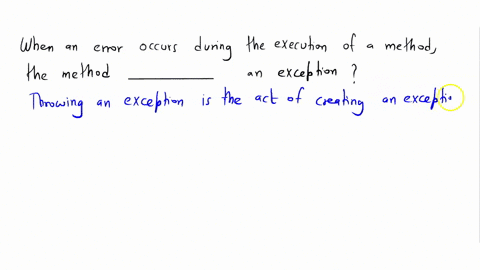 When an error occurs during the execution of a method,
the method __________ an exception ?
Throwing an exception is the act of creating an exceptio